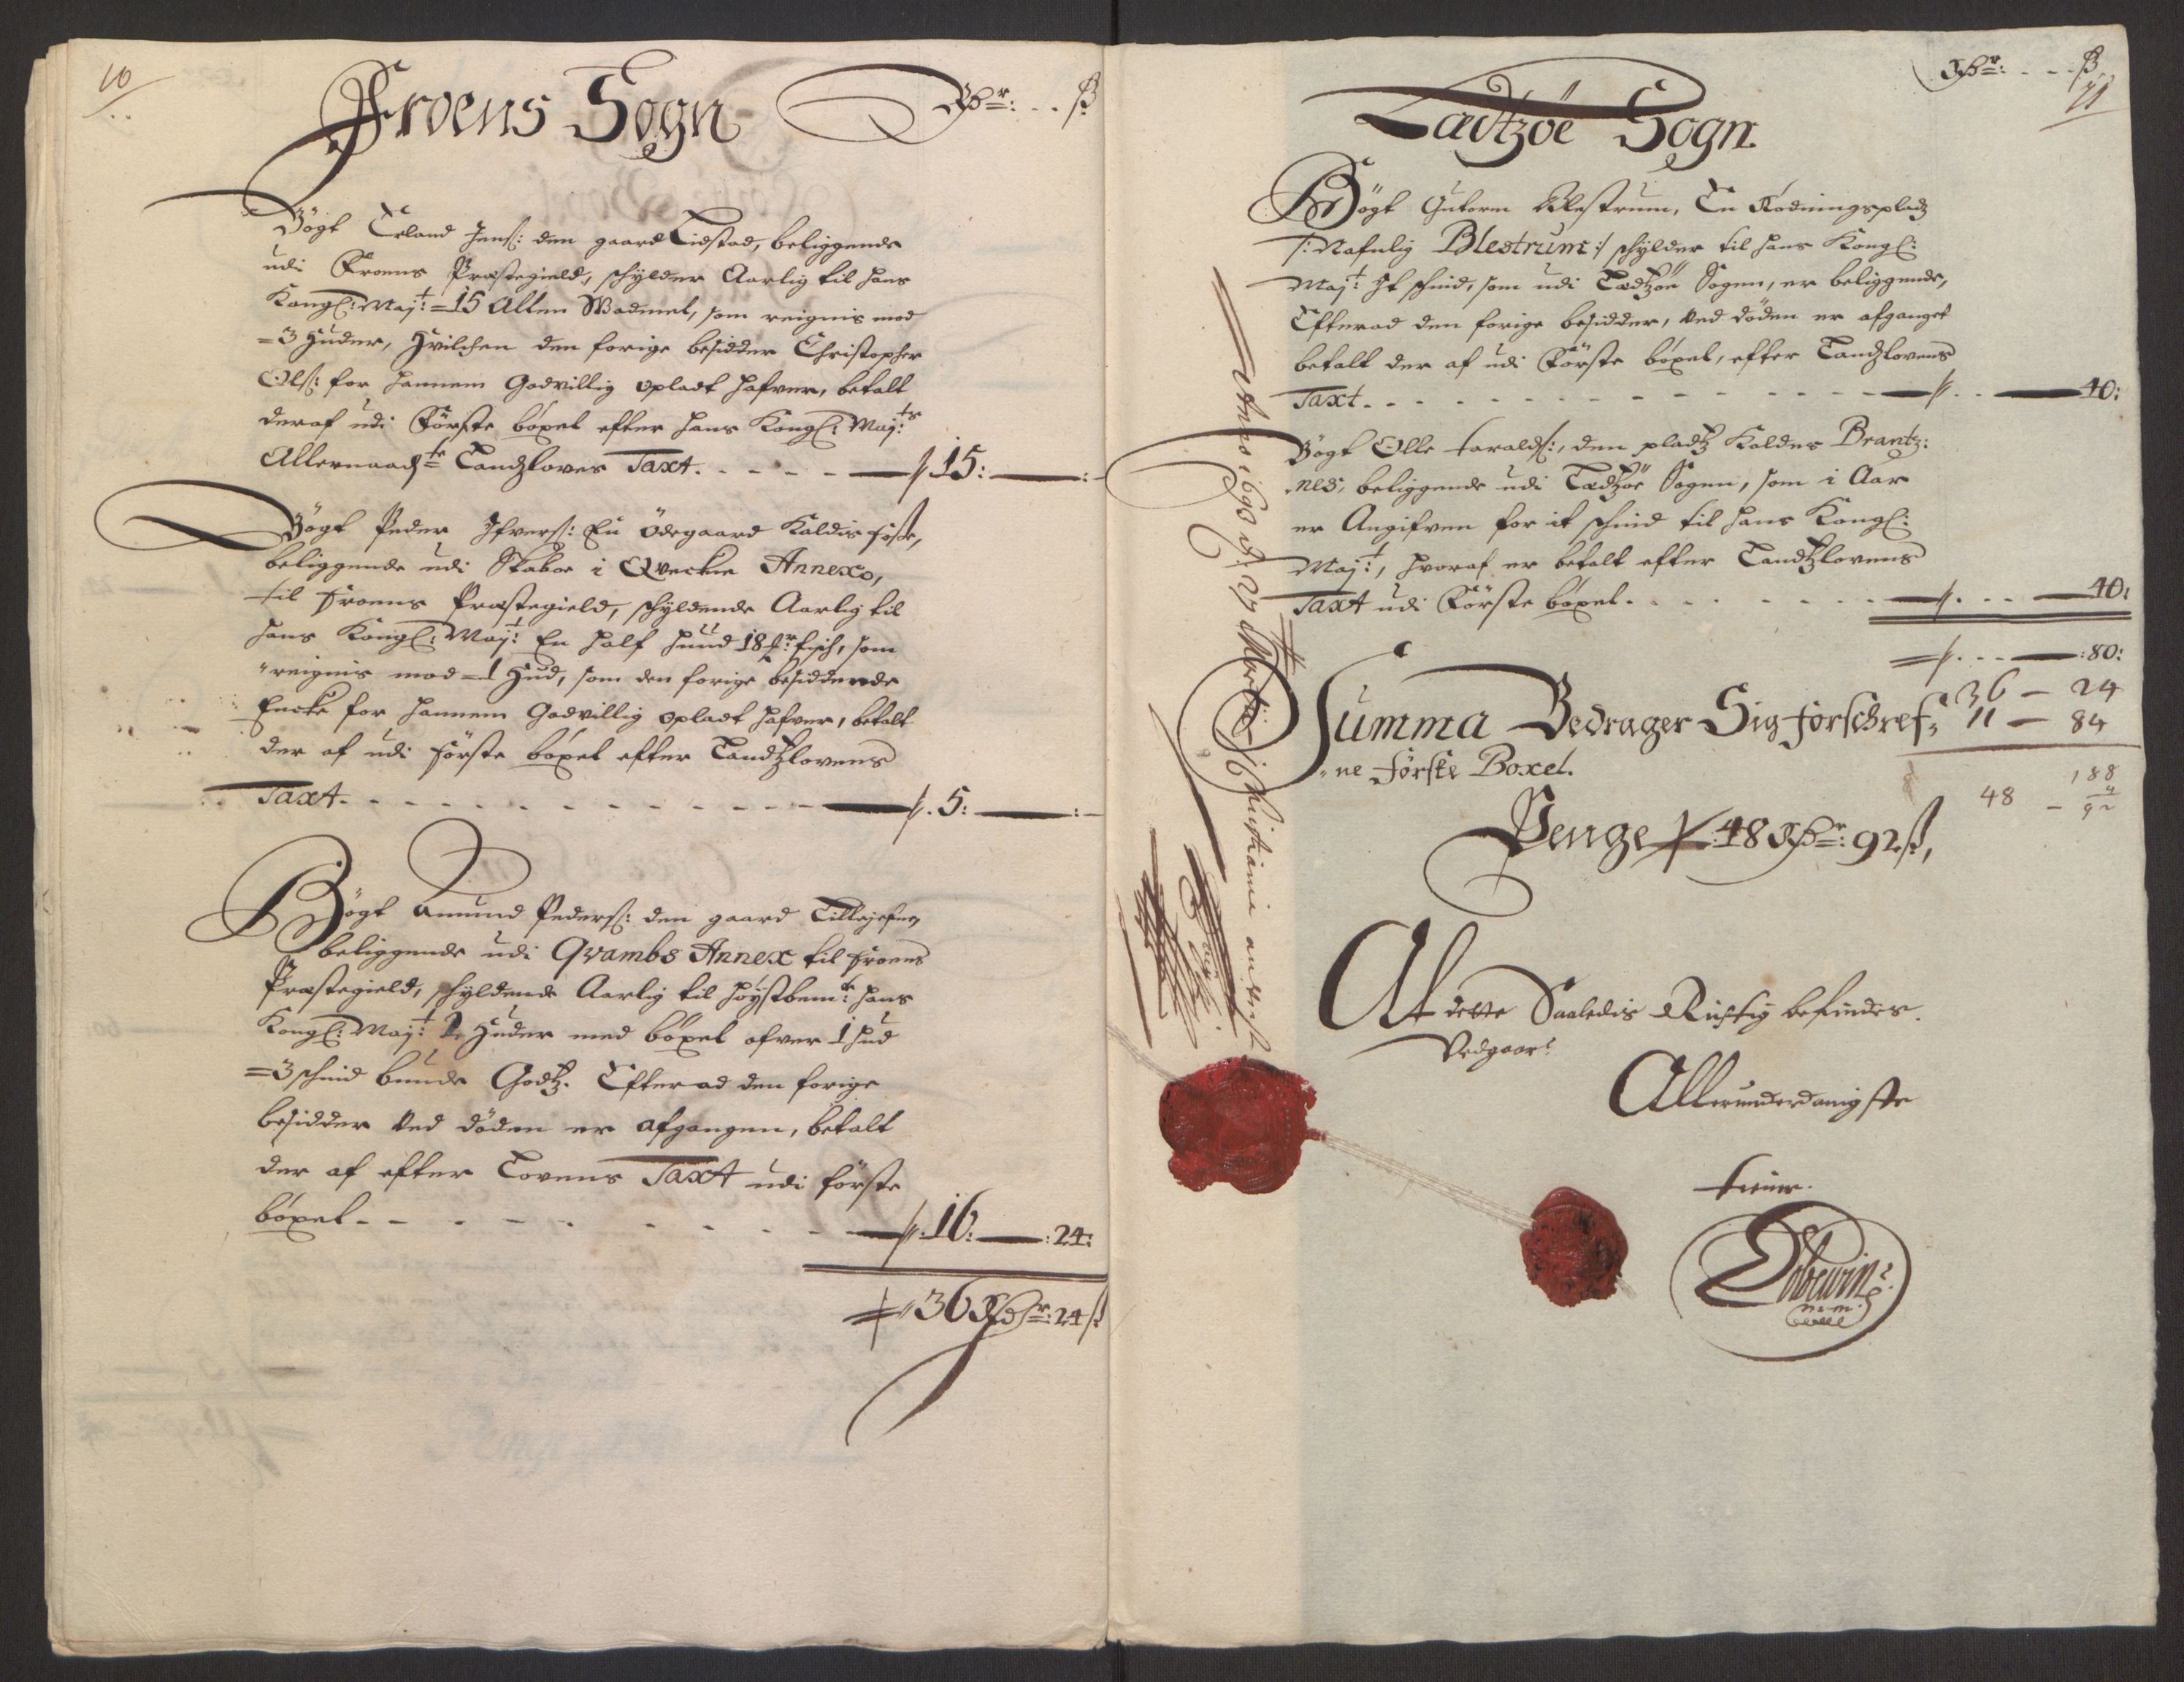 10
Froens Sogn
Rdr: . . ß
Bögt Erland Jens: den gaard Lidstad, beliggende
udi Froens Præstegield, schylder Aarlig til hans
Kongl: Maj:t =15 Allen Wadmel, som reignis mod
=3 Huder, Hvilchen den forige besidder Christopher
Ols: for hannem Godvillig opladt hafver, betalt
deraf udi Förste böxel efter hans Kongl: Maj:ts
Allernaad:te Landzloves Taxt. - - - - 15: — :
Bögt Peder Ifvers: En Ödegaard Kaldis
beliggende udi Skaboe i Qvechne Annexo,
til Froens Præstegield, schyldende Aarlig til
hans Kongl: Maj:t En half hund 18 fisch, som
reignis mod =1 Hud, som den forige besiddende
Encke for hannem Godvillig opladt hafver, betalt
der af udi förste böxel efter Landtzlovens
Taxt. - - - - - - - - - - 5: — :
Bögt Amund Peders: den gaard
beliggende udi Qvambs Annex til Froens
Præstegield, schyldende Aarlig til höystbem:te hans
Kongl: Maj:t 2 Huder med böxel ofver 1 hud
=3 schind bunde Godtz. Efter ad den forige
besidder ved döden er afgangen, betalt
der af efter Lovens Taxt udi förste
böxel - - - - - - - - 16: — : 24:
36 Rdr: 24 ß
Rdr: - - ß
11
Ladtzöe Sogn.
Bögt Gutorm Blestrum, En Rödningspladz
/: Nafnlig Blestrum :/ schylder til hans Kongl:
Maj:t It schind, som udi Ladtzöe Sogen, er beliggende,
Efter ad den forige besidder, ved döden er afganget
betalt der af udi Förste böxel, efter Landzlovens
Taxt. - - - - - - - - - - - 40:
Bögt Olle Haralds:, den pladtz Kaldes Brantz:
nes, beliggende udi Ladtzöe Sogen, som i Aar
er Angifven for it schind til hans Kongl:
Maj:t, hvoraf er betalt efter Landtzlovens
Taxt udi Förste böxel. - - - - - - 40:
- - - : 80:
36 — 24
Summa Bedrager Sig forschref: 11 — 84
ne förste Boxel.
188
48 — 92
Penge 48 Rdr: 92 ß,
At dette Saaledis Richtig befindes.
Vedgaar:
Allerunderdanigste
tiener.
Anno 1693 d: 27 Martii Christiania